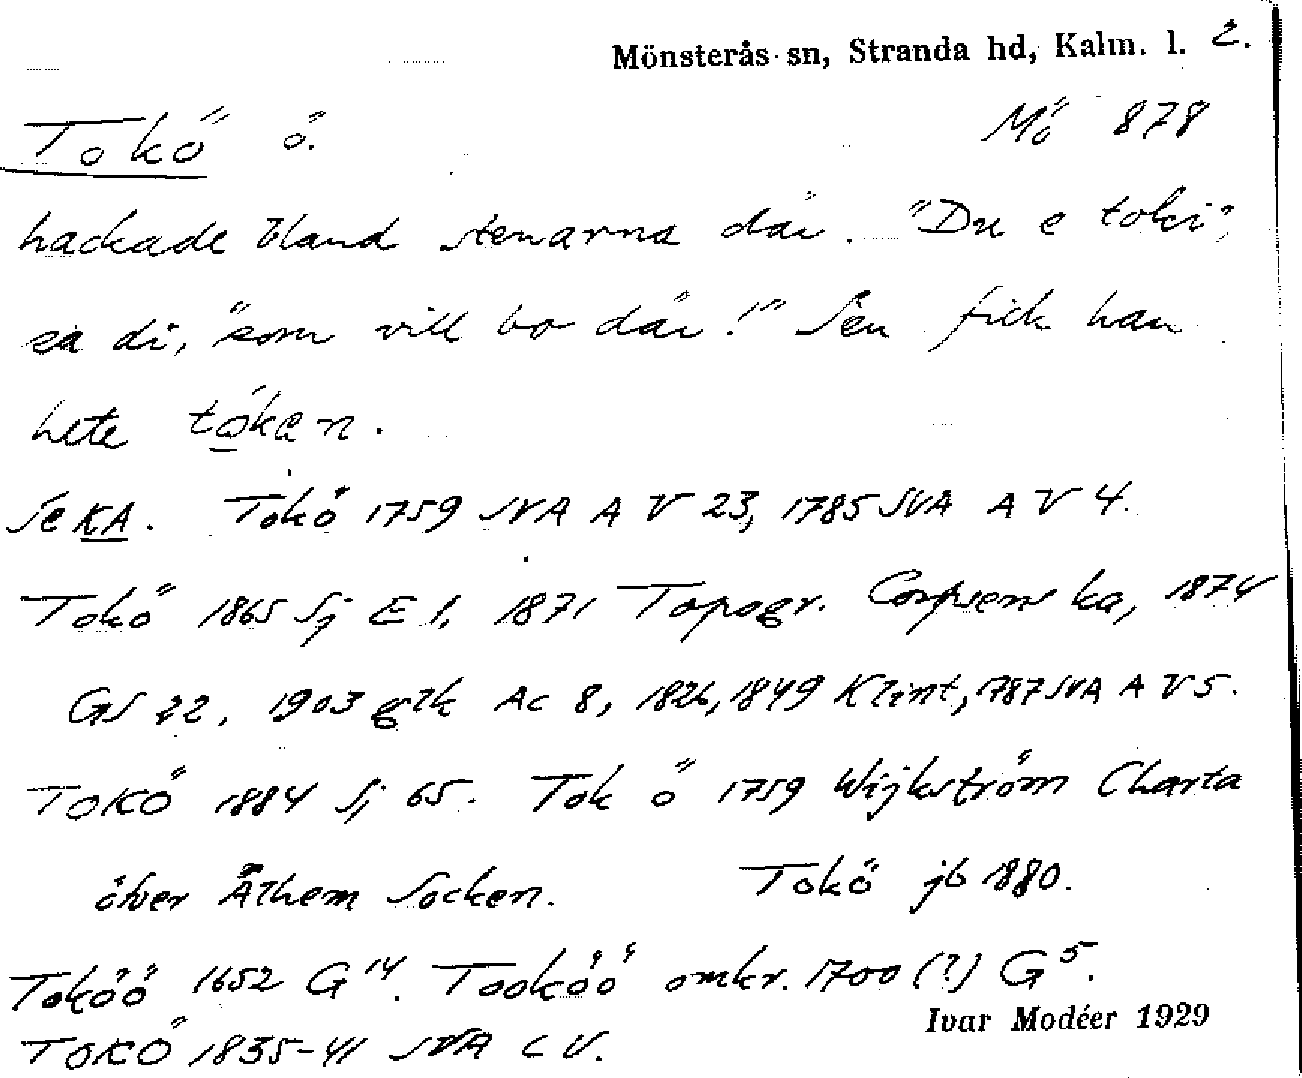 Mönsterås sn, Stranda hd, Kalm. l. 2.
Tokö ö. Mö 878
hackade bland stenarna där. "Du e toki",
sa di, "som vill bo där!" Sen fick han
hete tókan.
Se KA. Tokö 1759 SVA A V 23, 1785 SVA A V 4.
Tokö 1865 Sj E 1, 1871 Topogr. Corpsens ka, 1874
GS 22, 1903 glk Ac 8, 1826, 1849 Klint, 1787 SVA A V 5.
TOKÖ 1884 Sj 65. Tok ö 1759 Wijkström Charta
öfver Ålhem Socken. Tokö jb 1880.
Toköö 1652 G 14. Tooköö omkr. 1700 (?) G 5.
Ivar Modéer 1929
TOKÖ 1835-41 SVA C V.